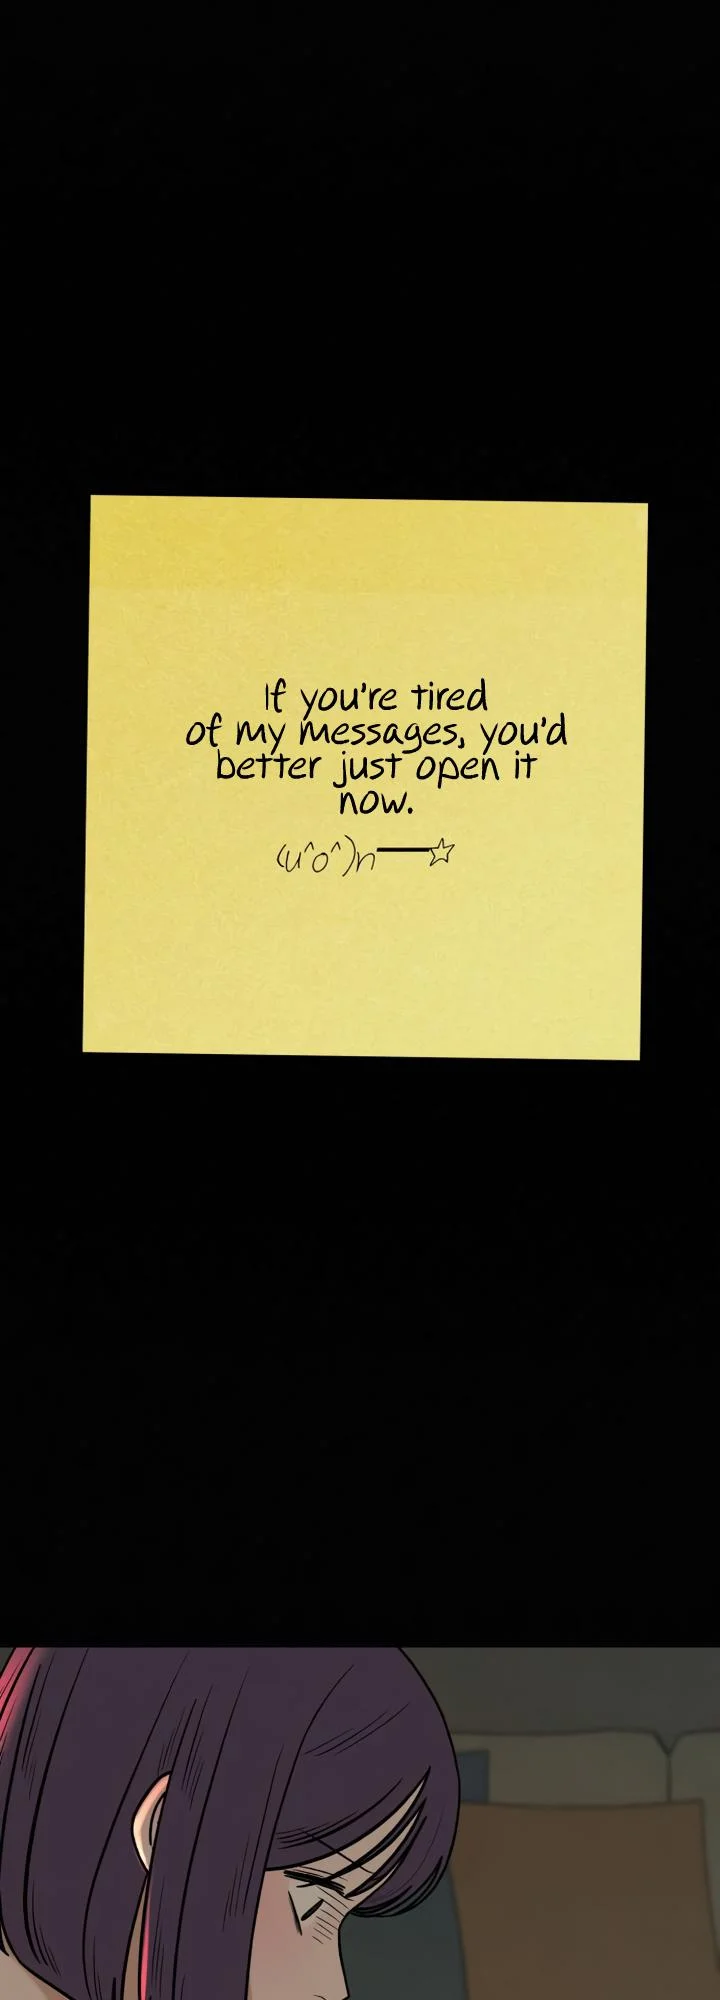 If you're tired
of my messages, you'd
better just open it
now.
(u^o^)n━━☆